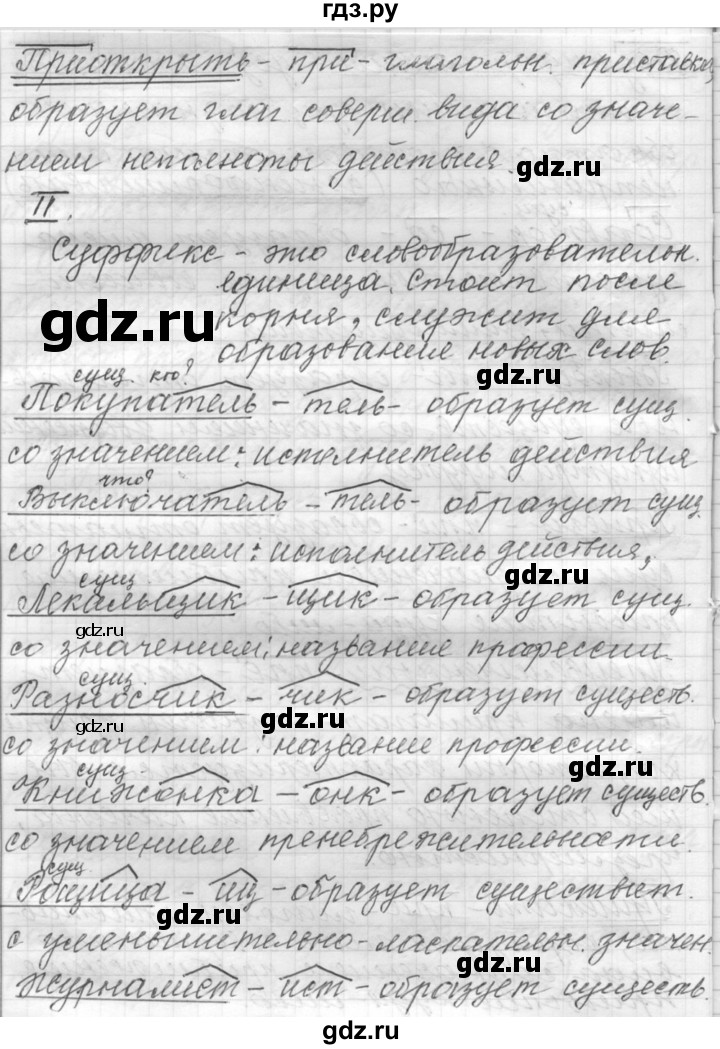 гдз.ру
Приоткрыть - при - глагольн. приставка,
образует глаг соверш. вида со значе-
нием неполноты действия.
gdz.ru
II.
Суффикс - это словообразовательн.
единица. Стоит после
gdz.ru
корня, служит для
образования новых слов.
сущ. кто?
Покупатель - тель - образует сущ.
со значением: исполнитель действия
что?
Выключатель - тель - образует сущ.
со значением: исполнитель действия,
gdz.ru
сущ.
Лекальщик - щик - образует сущ.
gdz.ru
со значением: название профессии
сущ.
Разносчик - чик - образует существ.
gdz.ru
gdz.ru
со значением: название профессии.
gdz.ru
сущ.
Книжонка - онк - образует существ.
со значением пренебрежительности.
сущ
Рощица - иц - образует существит.
gdz.ru
с уменьшительно-ласкательн. значен.
Журналист - ист - образует существ.
gdz.ru
gdz.ru